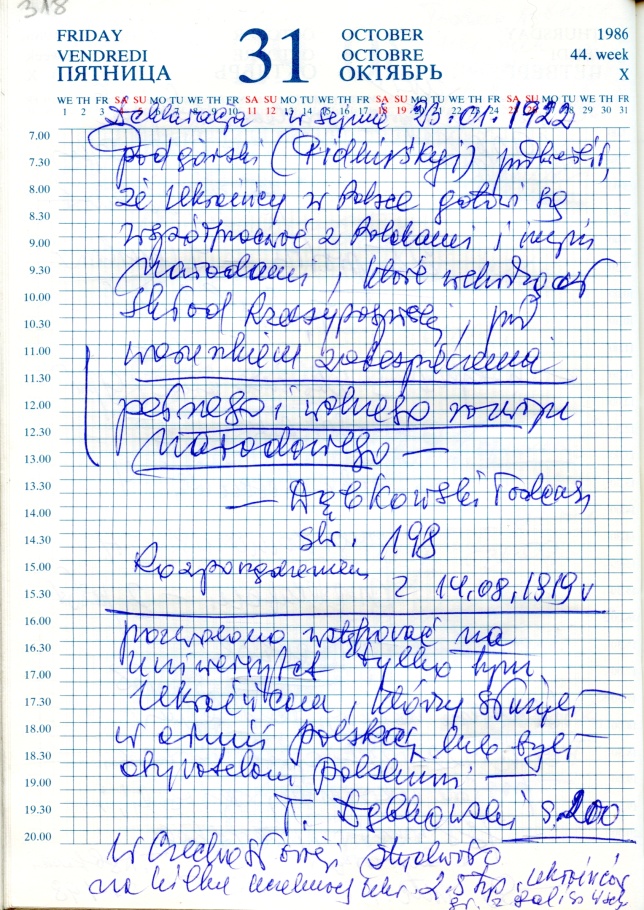 318
FRIDAY 31 OCTOBER 1986
VENDREDI OCTOBRE 44. week
ПЯТНИЦА ОКТЯБРЬ X
WE TH FR SA SU MO TU WE TH FR SA SU MO TU WE TH FR SA SU MO TU WE TH FR SA SU MO TU WE TH FR
1 2 3 4 5 6 7 8 9 10 11 12 13 14 15 16 17 18 19 20 21 22 23 24 25 26 27 28 29 30 31
Deklaracja w sejmie 23.01.1922
7.00
Podgórski (Pidhirśkyj) podkreślił,
7.30
że Ukraińcy w Polsce gotowi są
8.00
8.30
współpracować z Polakami i innymi
9.00
narodami, które wchodzą w
9.30
10.00
skład Rzeczypospolitej, pod
10.30
warunkiem zabezpieczenia
11.00
11.30
pełnego i wolnego rozwoju
12.00
12.30
narodowego —
13.00
— Dąbkowski Tadeusz
13.30
14.00
str. 198
14.30
Rozporządzeniem
15.00
z 14.08.1919 r
15.30
pozwolono wstępować na
16.00
uniwersytet tylko tym
16.30
17.00
Ukraińcom, którzy służyli
17.30
w armii polskiej lub byli
18.00
18.30
obywatelami polskimi —
19.00
T. Dąbkowski s. 200
19.30
20.00
W Czechosłowacji studiowało
na kilku uczelniach ukr. 2,5 tys. ukraińców